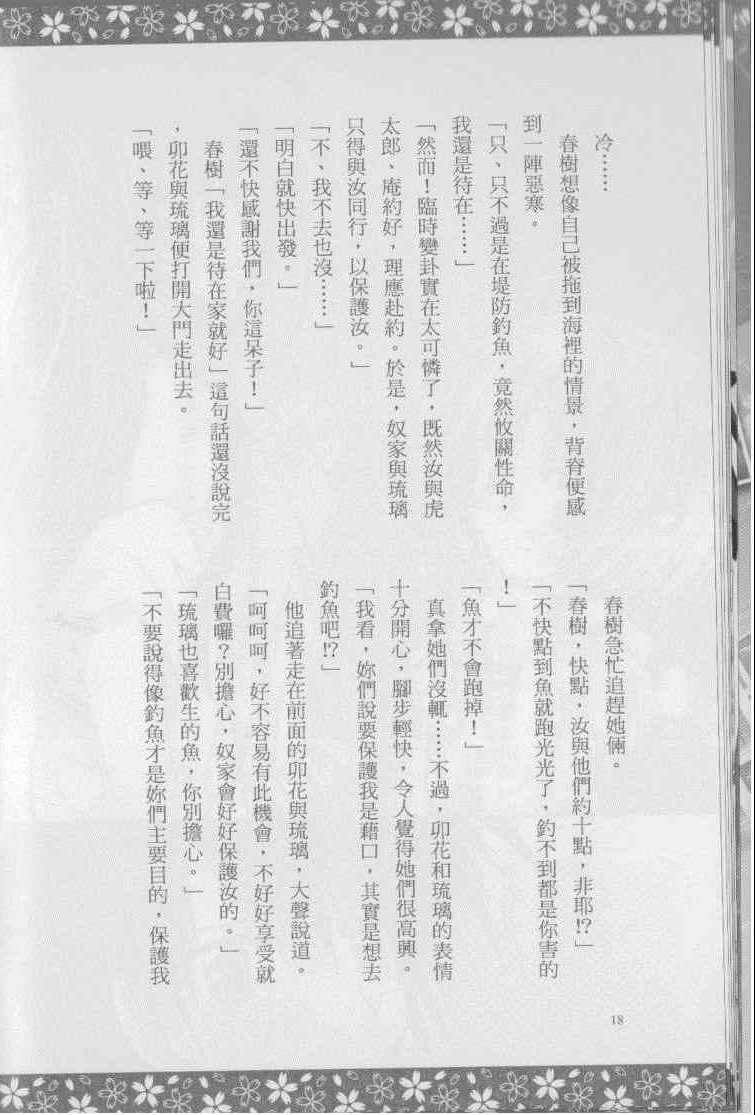 冷……
春樹想像自己被拖到海裡的情景，背脊便感
到一陣惡寒。
「只、只不過是在堤防釣魚，竟然攸關性命，
我還是待在……」
「然而！臨時變卦實在太可憐了，既然汝與虎
太郎、庵約好，理應赴約。於是，奴家與琉璃
只得與汝同行，以保護汝。」
「不、我不去也沒……」
「明白就快出發。」
「還不快感謝我們，你這呆子！」
春樹「我還是待在家就好」這句話還沒說完
，卯花與琉璃便打開大門走出去。
「喂、等、等一下啦！」
春樹急忙追趕她倆。
「春樹，快點，汝與他們約十點，非耶!?」
「不快點到魚就跑光光了，釣不到都是你害的
！」
「魚才不會跑掉！」
真拿她們沒輒……不過，卯花和琉璃的表情
十分開心，腳步輕快，令人覺得她們很高興。
「我看，妳們說要保護我是藉口，其實是想去
釣魚吧!?」
他追著走在前面的卯花與琉璃，大聲說道。
「呵呵呵，好不容易有此機會，不好好享受就
白費囉？別擔心，奴家會好好保護汝的。」
「琉璃也喜歡生的魚，你別擔心。」
「不要說得像釣魚才是妳們主要目的，保護我
18